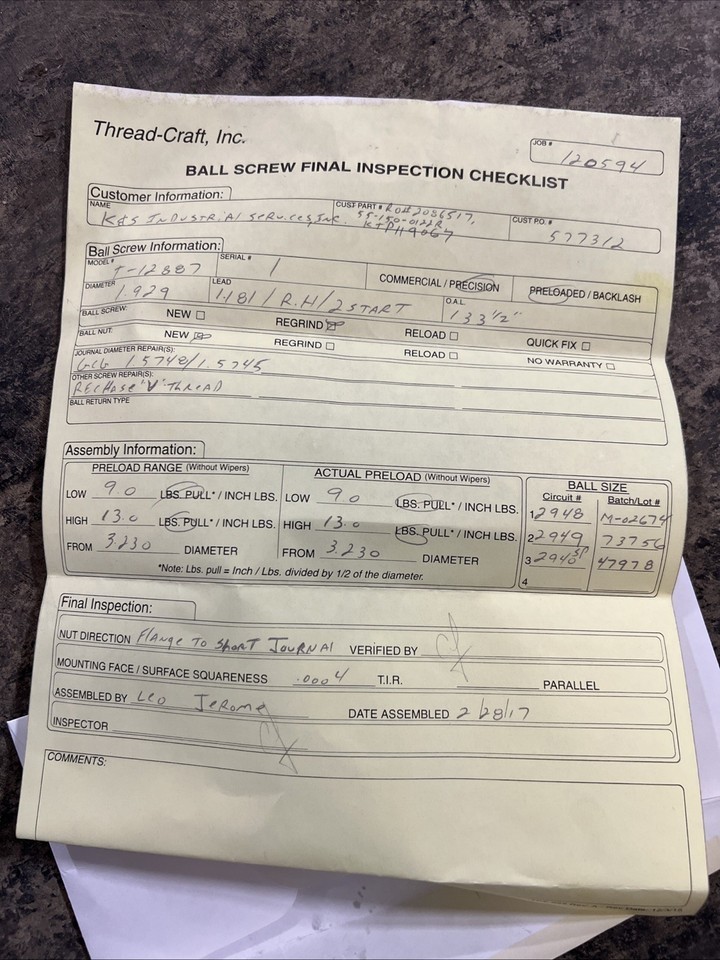 Thread-Craft, Inc.
JOB #
120594
BALL SCREW FINAL INSPECTION CHECKLIST
Customer Information:
NAME
K&S INDUSTRIAL SERVICES, INC.
CUST PART # RO# 2086517,
55-150-0122R
KIPH9067
CUST PO. #
577312
Ball Screw Information:
MODEL #
T-12887
SERIAL #
1
COMMERCIAL / PRECISION
PRELOADED / BACKLASH
DIAMETER
1.929
LEAD
1.481 / R.H / 2 START
O.A.L.
133 1/2"
BALL SCREW: NEW REGRIND RELOAD QUICK FIX
BALL NUT: NEW REGRIND RELOAD NO WARRANTY
JOURNAL DIAMETER REPAIR(S):
GCG 1.5748/1.5745
OTHER SCREW REPAIR(S):
RECHASE "V" THREAD
BALL RETURN TYPE
Assembly Information:
PRELOAD RANGE (Without Wipers)
LOW 9.0 LBS. PULL* / INCH LBS.
HIGH 13.0 LBS. PULL* / INCH LBS.
FROM 3.230 DIAMETER
ACTUAL PRELOAD (Without Wipers)
LOW 9.0 LBS. PULL* / INCH LBS.
HIGH 13.0 LBS. PULL* / INCH LBS.
FROM 3.230 DIAMETER
*Note: Lbs. pull = Inch / Lbs. divided by 1/2 of the diameter.
BALL SIZE
Circuit # Batch/Lot #
1 .2948 M-02674
2 .2949 73756
3 .2940 SP 47978
4
Final Inspection:
NUT DIRECTION Flange TO SHORT JOURNAl VERIFIED BY
MOUNTING FACE / SURFACE SQUARENESS .0004 T.I.R. PARALLEL
ASSEMBLED BY Leo Jerome DATE ASSEMBLED 2/28/17
INSPECTOR
COMMENTS: